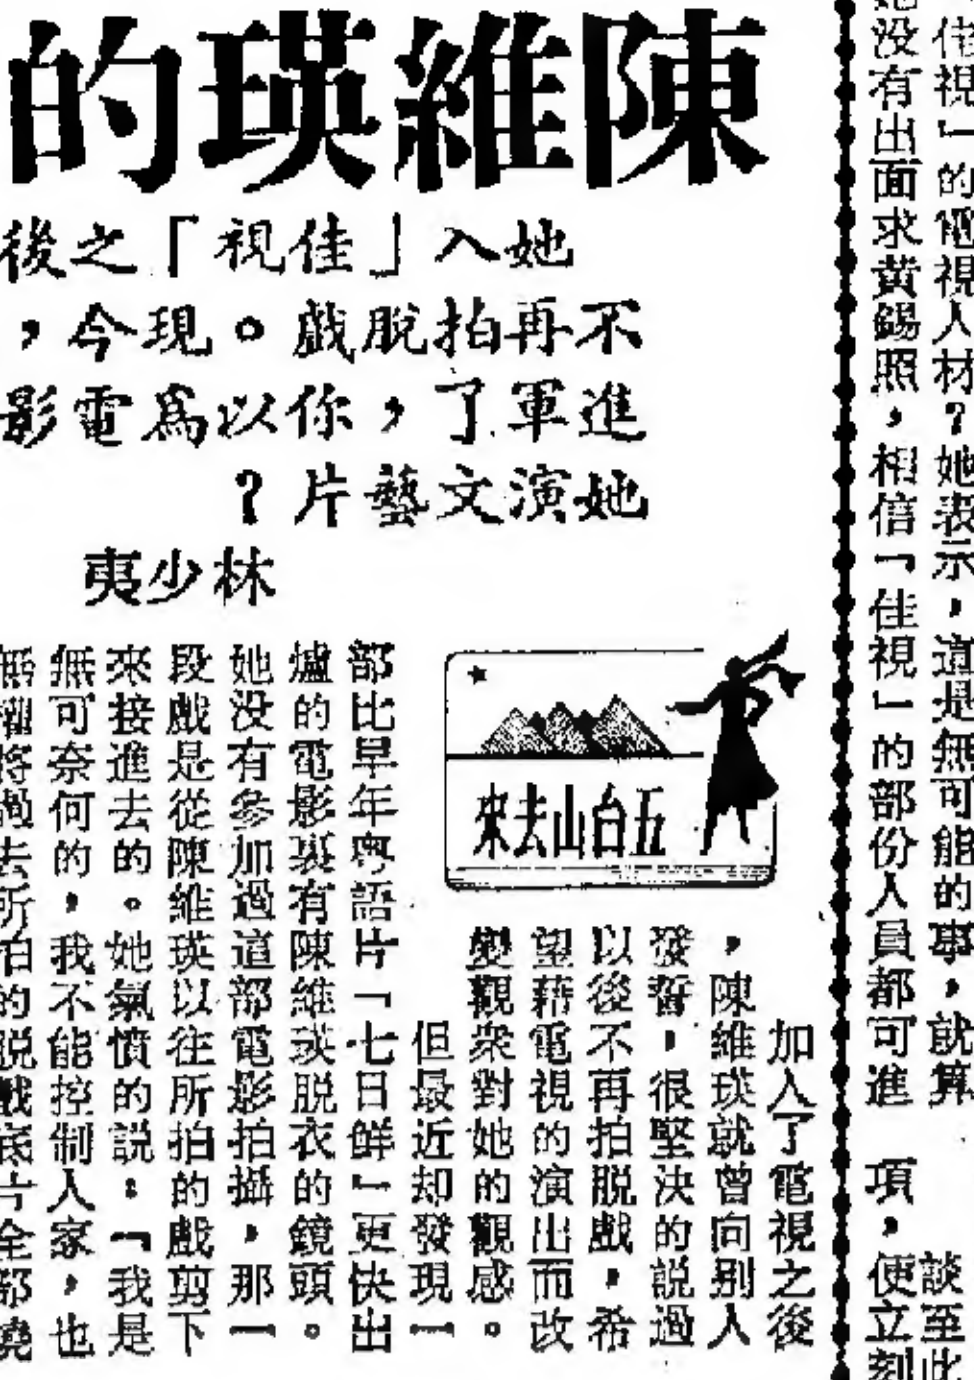 陳維瑛的
她入「佳視」之後
不再拍脫戲。現今，
進軍了，你以爲電影
她演文藝片？
林少夷
五台山去來
加入了電視之後
，陳維瑛就曾向別人
發誓，很堅決的説過
以後不再拍脱戲，希
望藉電視的演出而改
變觀衆對她的觀感。
但最近却發現一
部比早年粤語片「七日鮮」更快出
爐的電影裏有陳維瑛脱衣的鏡頭。
她没有參加過這部電影拍攝，那一
段戲是從陳維瑛以往所拍的戲剪下
來接進去的。她氣憤的説：「我是
無可奈何的，我不能控制人家，也
無權將過去所拍的脱戲底片全部燒
佳視」的電視人材？她表示，這是無可能的事，就算
没有出面求黃錫照，相信「佳視」的部份人員都可進
談至此
項，便立刻